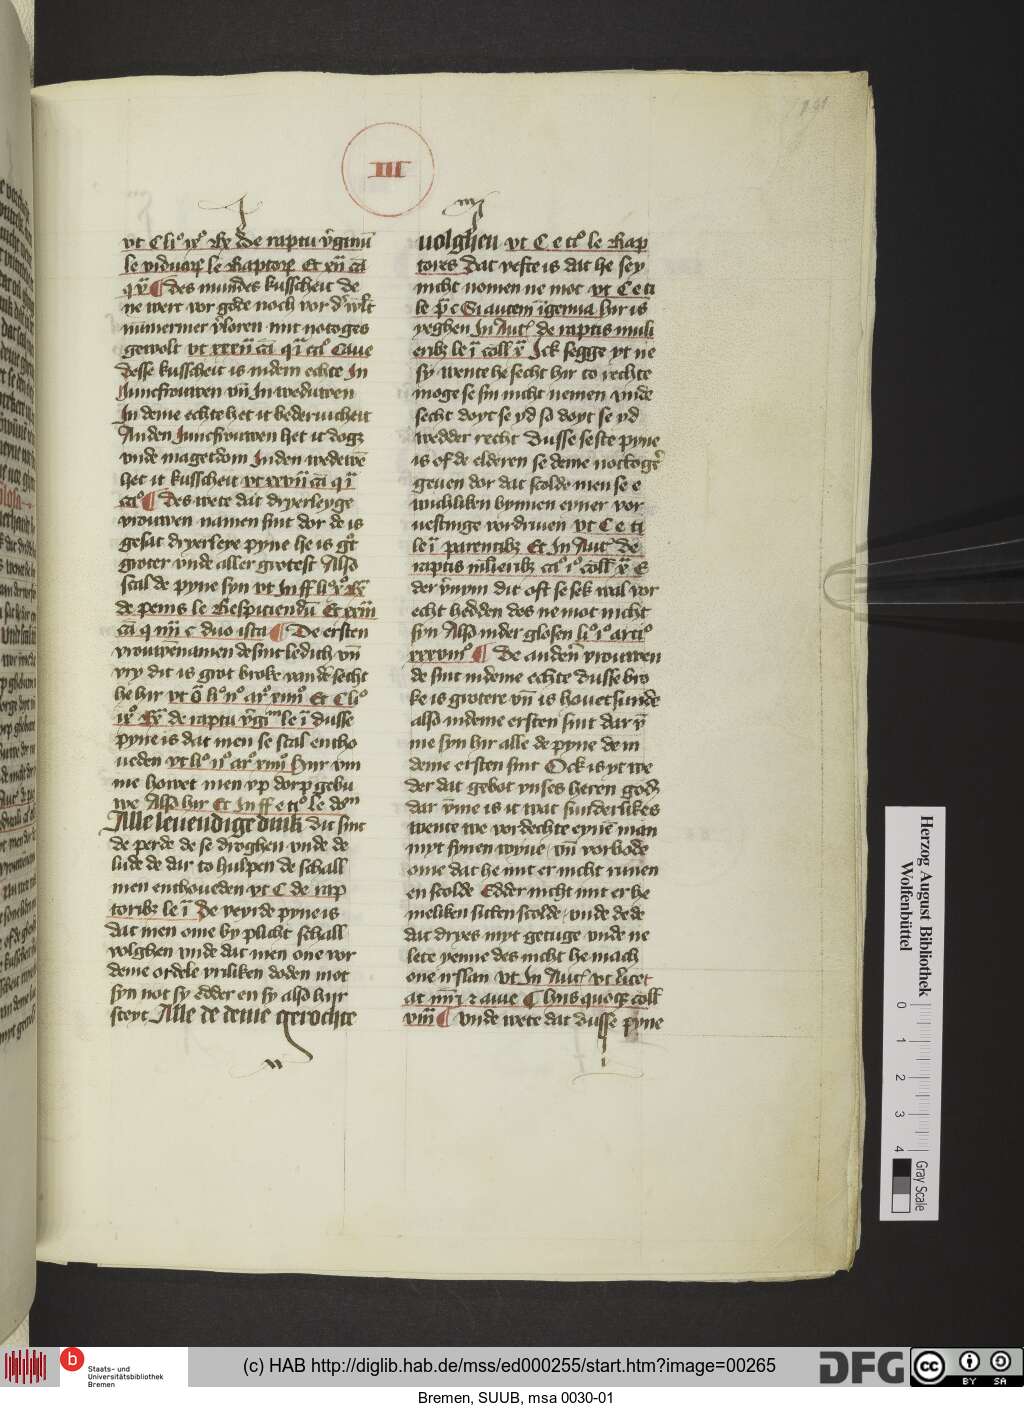 III
vt C li° ix° Rx de raptu v̄ginū
le viduaꝝ le Raptoꝝ Et xxij cā
q v ¶ des mundes kusscheit de
ne wert vor gode noch vor dͬ wlt
nummermer v̄loren mit notoges
gewolt vt xxxij cā q i ca° Caue
desse kusscheit is indem echte In
Juncfrouwen vn̄ In weduwen
In deme echte het it bederuicheit
An den Juncfrouwen het it doget
vnde magetdom In den wedewē
het it kusscheit vt xxvij cā q i
ca° ¶ Des wete dat dryerleyge
vrouwen namen sint dor de is
gesat dryerleye pyne he is
groter vnde aller grotest Also
scal de pyne syn vt In ff li
de penis le Respiciendū Et xxiiij
cā q iiij c duo ista ¶ De ersten
vrouwēnamen de sint ledich vn̄
vry dit is grot broke van dē secht
he hir vt li° ij° ar° xiiij° Et C li°
ix° de raptu v̄gi le i dusse
pyne is dat men se scal entho
ueden vt li° ij° ar° xiiij hir vm
me howet men vp dorp gebu
we Also hir Et In ff e ti° le
Alle leuendige dink dit sint
de perde de se droghen vnde de
lude de dar to hulpen de schall
men enthoueden vt C de rap
toribꝫ le i De veyrde pyne is
dat men ome by plicht schall
volghen vnde dat men one vor
deme ordele vriliken doden mot
syn not sy Edder en sy also hir
steyt Alle de deme gerochte
volghen vt C e ti° le Rap
tores Dat vefte is dat he sey
nicht nomen ne mot vt C e ti
le c Si autem ingenua hir is
yeghen In Aut de raptis muli
eribꝫ le i coll Ick segge yt ne
sy wente he secht hir to rechte
moge se sin nicht nemen vnde
secht doyt se yd so doyt se yd
wedder recht Dusse seste pyne
is of de elderen se deme nottogͤr
geuen dor dat scolde men se e
wichliken bynnen eyner vor
uestinge vordriuen vt C e ti
le i parentibꝫ Et In Aut de
raptis mlieribꝫ ca° i° coll
der dit oft se sek wal vor
echt hedden des ne mot nicht
syn Also inder glosen li° i° arti°
xxxvii° ¶ De anderē vrouwen
de sint indeme echte dusse bro
ke is grotere vn̄ is houetsunde
also indeme ersten sint dar v̄
me syn hir alle de pyne de in
deme ersten sint Ock is yt we
der dat gebot vnses heren godꝫ
dar v̄me is it wat sunderlikes
wente we vordechte eynē man
myt sinen wyue vn̄ vorbode
ome dat he mit er nicht runen
en scolde Edder nicht mit er he
meliken sitten scolde vnde dede
dat dryes myt getuge vnde ne
lete yenne des nicht he mach
one irslan vt In Aut vt licet
at
¶ vnde wete dat dusse pyne
Herzog August Bibliothek
Wolfenbüttel
0 1 2 3 4
Gray Scale
b
Staats- und
Universitätsbibliothek
Bremen
(c) HAB http://diglib.hab.de/mss/ed000255/start.htm?image=00265
DFG
cc BY SA
Bremen, SUUB, msa 0030-01